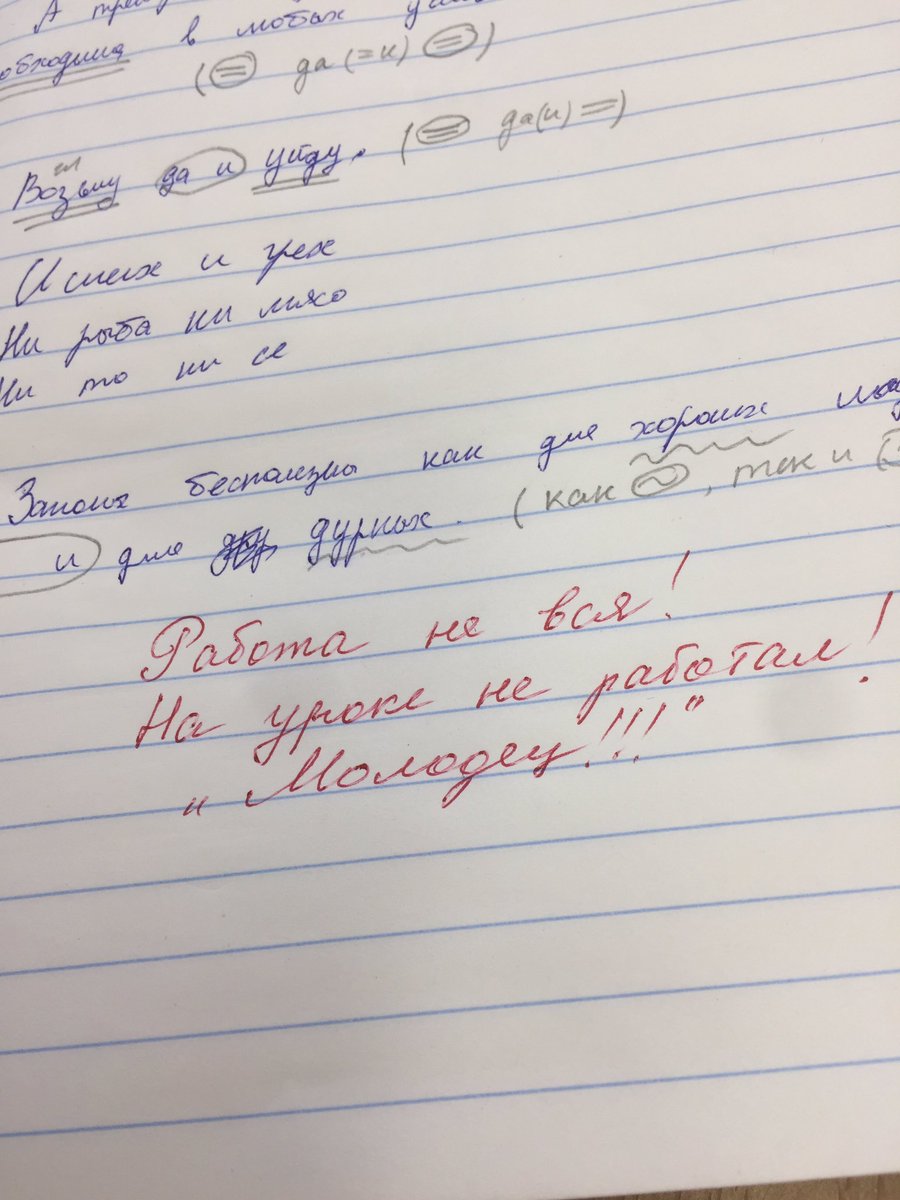 А
обходима в любых
( = да (=и) = )
гл
Возьму да и уйду. ( = да(и) = )
И смех и грех
Ни рыба ни мясо
Ни то ни се
Законы бесполезны как для хороших
и для дурных. (как ~, так и
Работа не вся!
На уроке не работал!
„Молодец!!!"